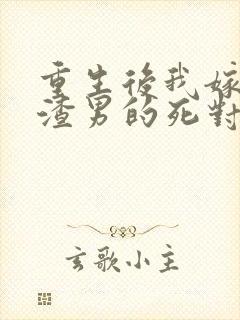 重生後我嫁
渣男的死對
玄歌小主